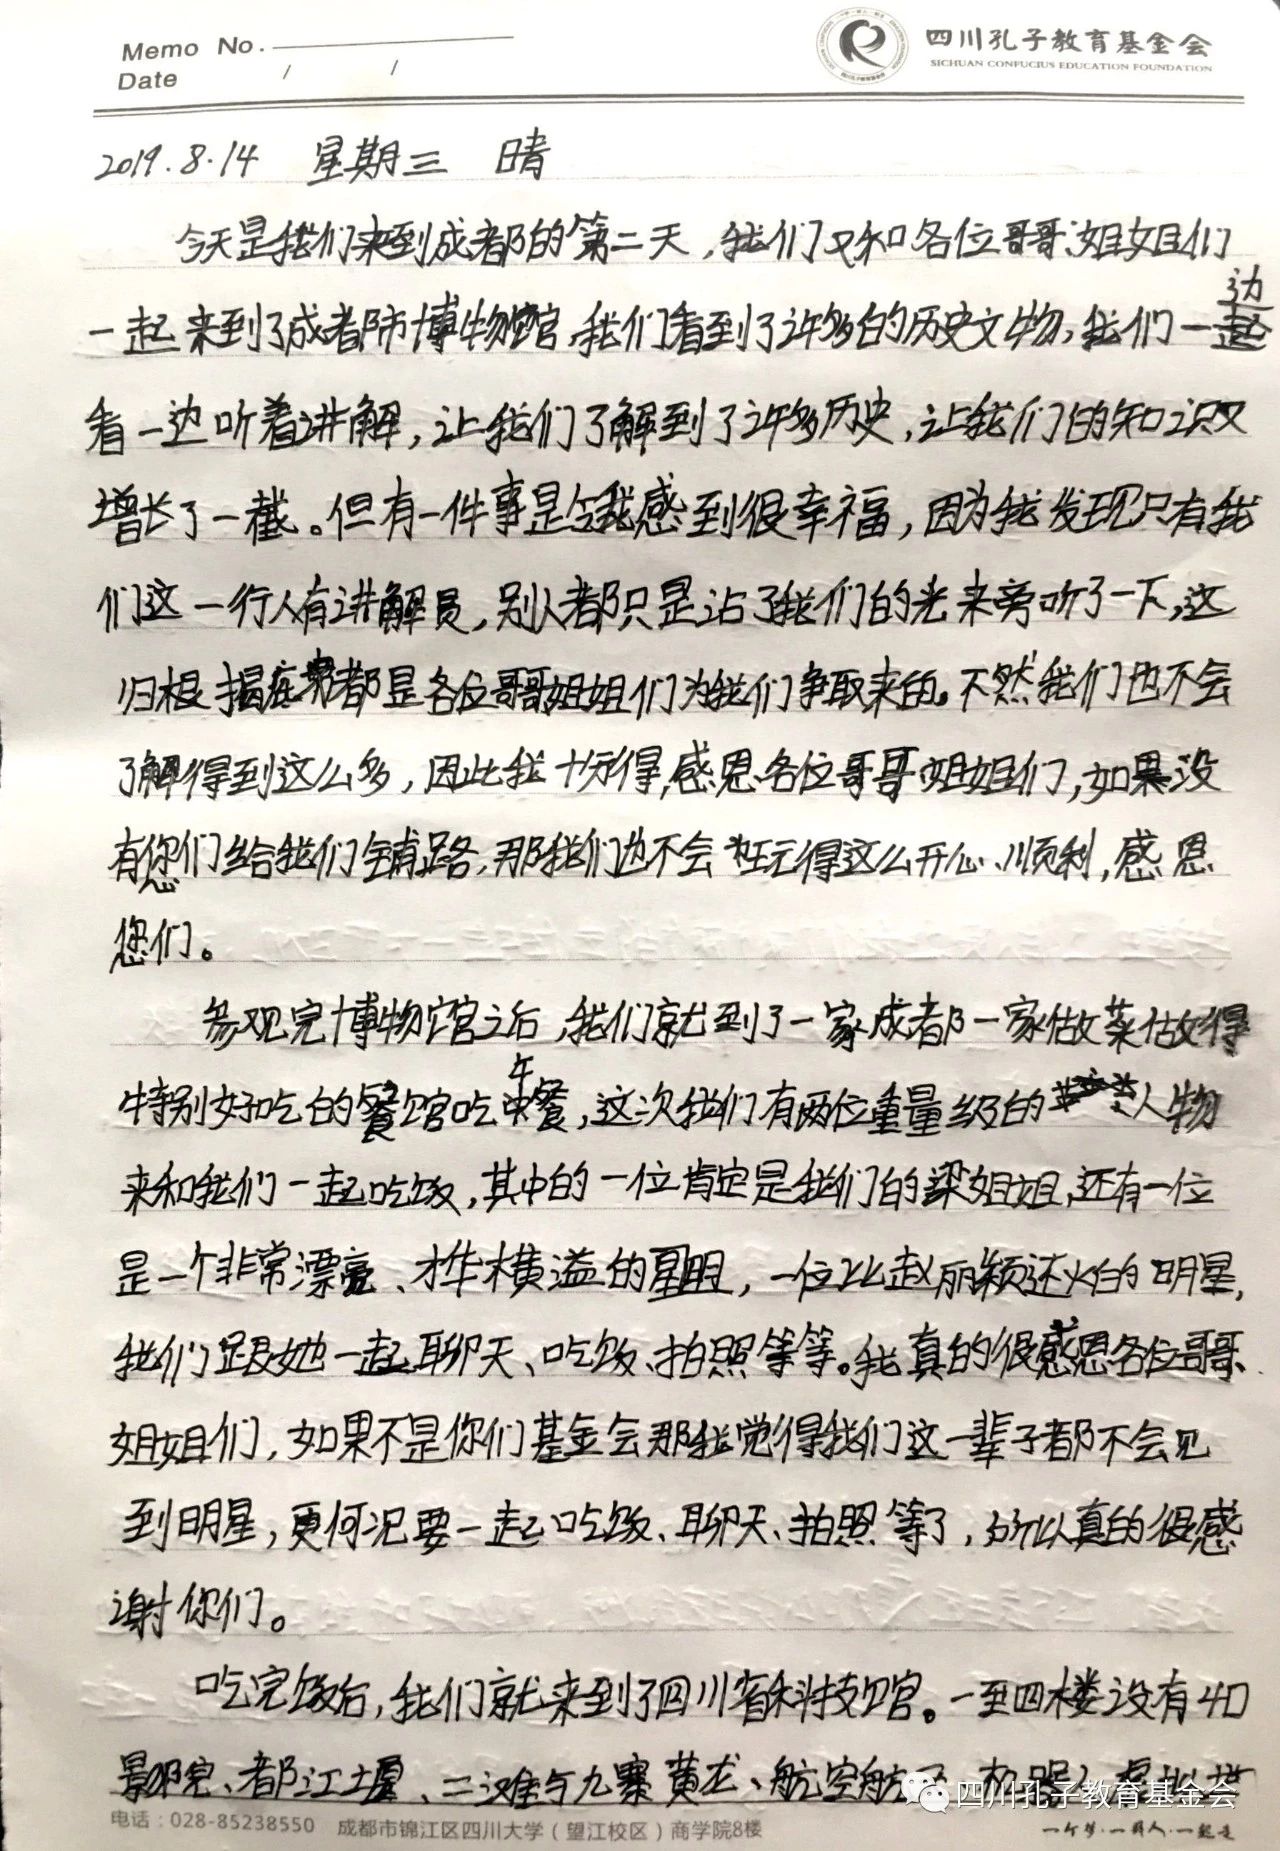 Memo No.
Date / /
四川孔子教育基金会
SICHUAN CONFUCIUS EDUCATION FOUNDATION
2019.8.14 星期三 晴
今天是我们来到成都的第二天,我们又和各位哥哥姐姐们
一起来到了成都市博物馆,我们看到了许多的历史文物,我们一边
看一边听着讲解,让我们了解到了许多历史,让我们的知识又
增长了一截。但有一件事是令我感到很幸福,因为我发现只有我
们这一行人有讲解员,别人都只是沾了我们的光来旁听了一下,这
归根揭底都是各位哥哥姐姐们为我们争取来的。不然我们也不会
了解得到这么多,因此我十分得感恩各位哥哥姐姐们,如果没
有您们给我们铺路,那我们也不会玩得这么开心、顺利,感恩
您们。
参观完博物馆之后,我们就到了一家成都一家做菜做得
特别好吃的餐馆吃午餐,这次我们有两位重量级的人物
来和我们一起吃饭,其中的一位肯定是我们的梁姐姐,还有一位
是一个非常漂亮、才华横溢的星明,一位比赵丽颖还火的明星,
我们跟她一起聊天、吃饭、拍照等等。我真的很感恩各位哥哥、
姐姐们,如果不是你们基金会那我觉得我们这一辈子都不会见
到明星,更何况要一起吃饭、聊天、拍照等了,所以真的很感
谢你们。
吃完饭后,我们就来到了四川省科技馆。一至四楼没有40
景邻宛、都江堰、二滩与九寨黄龙、航空航
四川孔子教育基金会
电话:028-85238550 成都市锦江区四川大学(望江校区)商学院8楼
一个梦·一群人·一起走